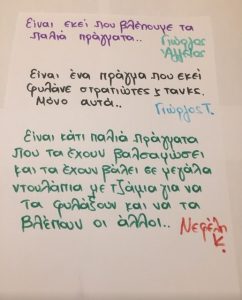 Είναι εκεί που βλέπουμε τα
παλιά πράγματα..
Γιώργος
Άγγελος
Είναι ένα πράγμα που εκεί
φυλάνε στρατιώτες ξ τανκς.
Μόνο αυτά..
Γιώργος Τ.
Είναι κάτι παλιά πράγματα
που τα έχουν βαλσαμώσει
και τα έχουν βάλει σε μεγάλα
ντουλάπια με τζάμια για να
τα φυλάξουν και να τα
βλέπουν οι άλλοι..
Νεφέλη
Κ.